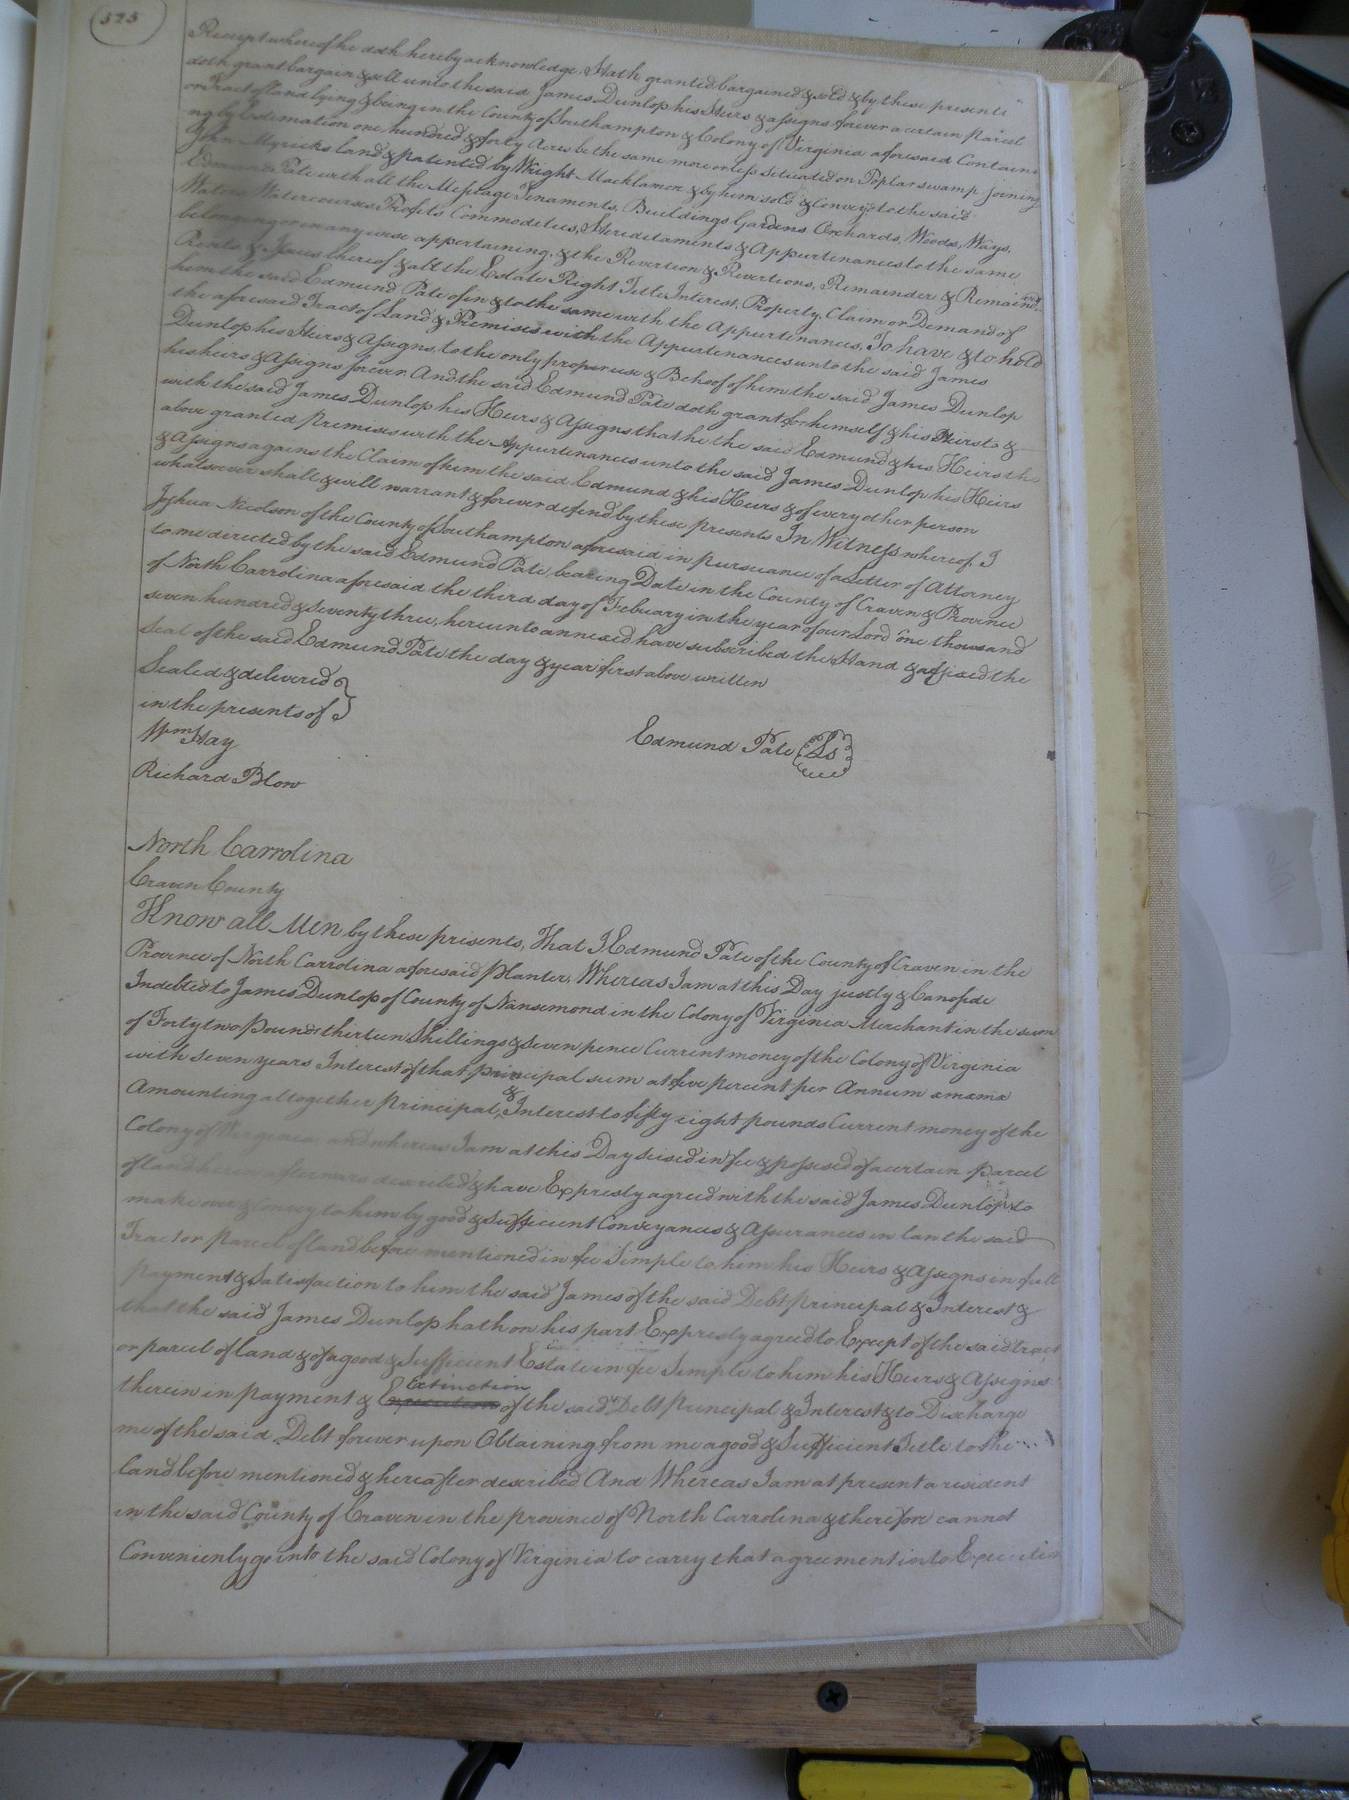 525
Receipt whereof he doth hereby acknowledge. Hath granted bargained & sold & by these presents
doth grant bargain & sell unto the said James Dunlop his Heirs & assigns forever a certain parcel
or Tract of land lying & being in the County of Southampton & Colony of Virginia aforesaid Contain
ng by Estimation one hundred & forty Acres be the same more or less situated on Poplar swamp joining
John Myricks land & patented by Wright Macklamore & by him sold & Convey'd to the said
Edmund Pate with all the Messuage Tenaments, Buildings Gardens Orchards, Woods, Ways,
Waters Watercourses Profits Commodities, Hereditaments & Appurtenances to the same
belonging or in any wise appertaining, & the Revertion & Revertions, Remainder & Remainders
Rents & Issues thereof & all the Estate Right Title Interest, Property, Claim or Demand of
him the said Edmund Pate of in & to the same with the Appurtenances, To have & to hold
the aforesaid Tract of Land & Premises with the Appurtenances unto the said James
Dunlop his Heirs & Assigns, to the only proper use & Behoof of him the said James Dunlop
his heirs & Assigns forever And the said Edmund Pate doth grant for himself & his Heirs to &
with the said James Dunlop his Heirs & Assigns that he the said Edmund & his Heirs the
above granted Premises with the Appurtenances unto the said James Dunlop his Heirs
& Assigns against the Claim of him the said Edmund & his Heirs & of every other person
whatsoever shall & will warrant & forever defend by these presents In Witness whereof I
Joshua Nicolson of the County of Southampton aforesaid in pursuance of a Letter of Attorney
to me directed by the said Edmund Pate bearing Date in the County of Craven & Province
of North Carrolina aforesaid the third day of Febuary in the year of our Lord one thousand
seven hundred & seventy three, hereunto annexed have subscribed the Hand & affixed the
Seal of the said Edmund Pate the day & year first above written
Sealed & delivered
in the presents of
Edmund Pate Ls
Wm Hay
Richard Blow
North Carrolina
Craven County
Know all Men by these presents, That I Edmund Pate of the County of Craven in the
Province of North Carrolina aforesaid Planter, Whereas I am at this Day justly &
Indebted to James Dunlop of County of Nansemond in the Colony of Virginia Merchant in the sum
of Forty two Pounds therteen Shillings & seven pence Current money of the Colony of Virginia
with seven years Interest of that principal sum at five percent per Annum
Amounting altogether Principal & Interest to fifty eight pounds Current money of the
Colony of Virginia and whereas I am at this Day seised in fee & possesed of a certain parcel
of land herein afterwards described & have Expresly agreed with the said James Dunlop to
make over & Convey to him by good & Sufficient Conveyances & Assurances in Law the said
Tract or Parcel of land before mentioned in fee Simple to him his Heirs & Assigns in full
payment & Satisfaction to him the said James of the said Debt principal & Interest &
that the said James Dunlop hath on his part Expresly agreed to Except of the said tract
or parcel of land & of a good & Sufficient Estate in fee Simple to him his Heirs & Assigns
therein in payment & Extinction of the said Debt Principal & Interest & to Discharge
me of the said Debt forever upon Obtaining from me a good & Sufficient Title to the
land before mentioned & hereafter described And Whereas I am at present a resident
in the said County of Craven in the province of North Carrolina & therefore cannot
Convenienly go into the said Colony of Virginia to carry that agreement into Execution